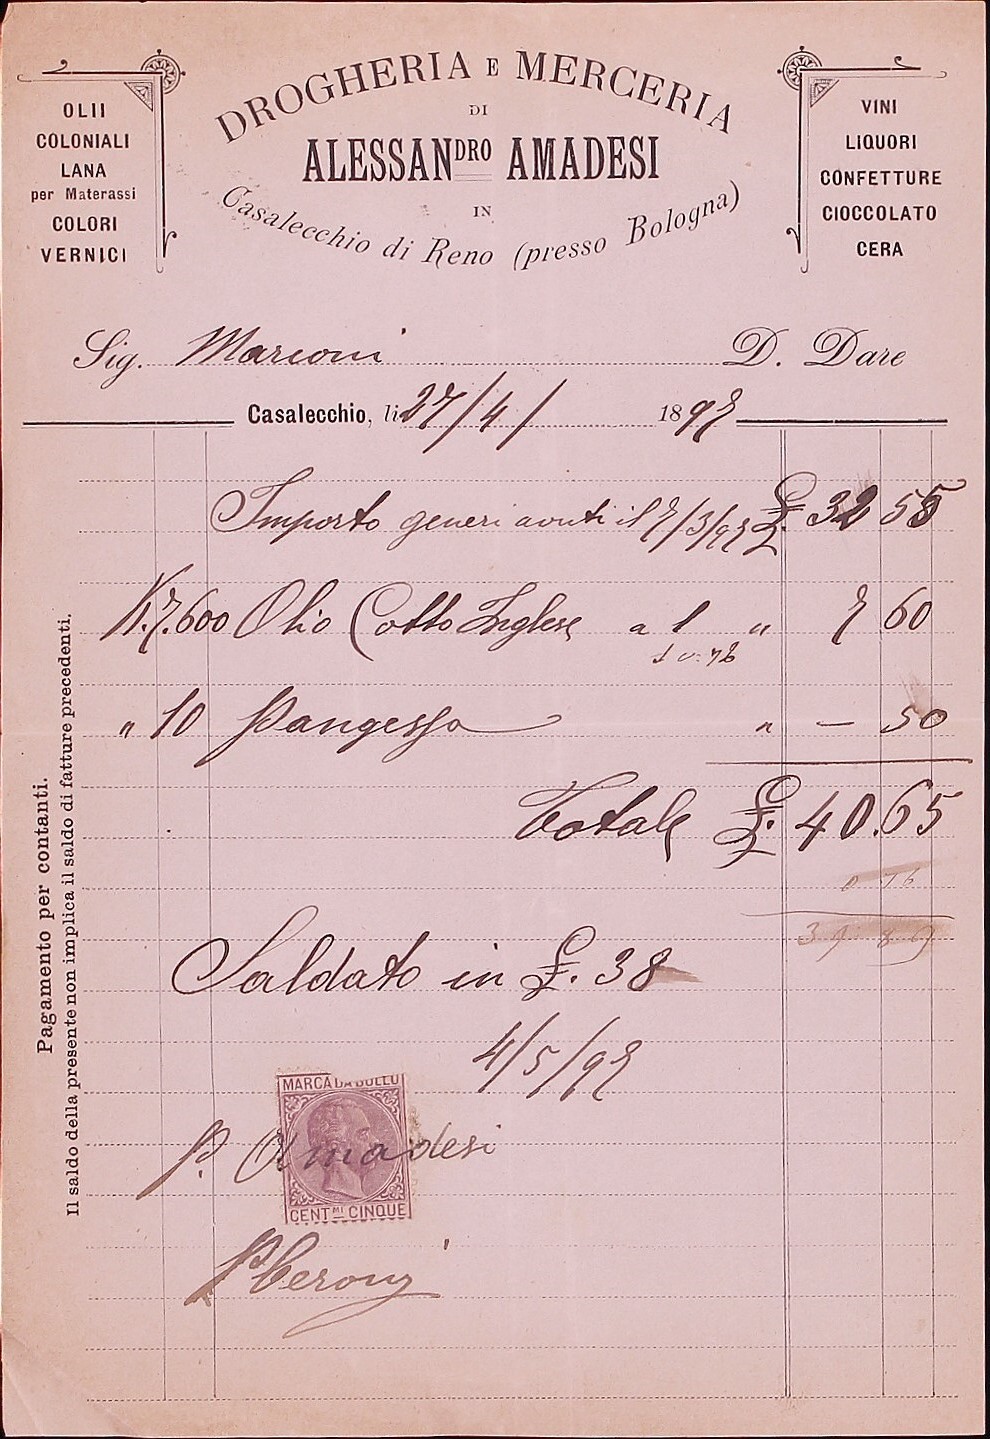 DROGHERIA E MERCERIA
DI
ALESSANDRO AMADESI
IN
Casalecchio di Reno (presso Bologna)
OLII
COLONIALI
LANA
per Materassi
COLORI
VERNICI
VINI
LIQUORI
CONFETTURE
CIOCCOLATO
CERA
Sig. Marconi D. Dare
Casalecchio, li 27/4/ 1897
Importo generi avuti il 7/3/97 £. 32 55
K. 7.600 Olio Cotto Inglese a 1 " 7 60
" 10 Pangesso " — 50
Totale £. 40.65
0 76
39 89
Saldato in £. 38
4/5/97
P. Amadesi
MARCA DA BOLLO
CENT.MI CINQUE
Pagamento per contanti.
Il saldo della presente non implica il saldo di fatture precedenti.